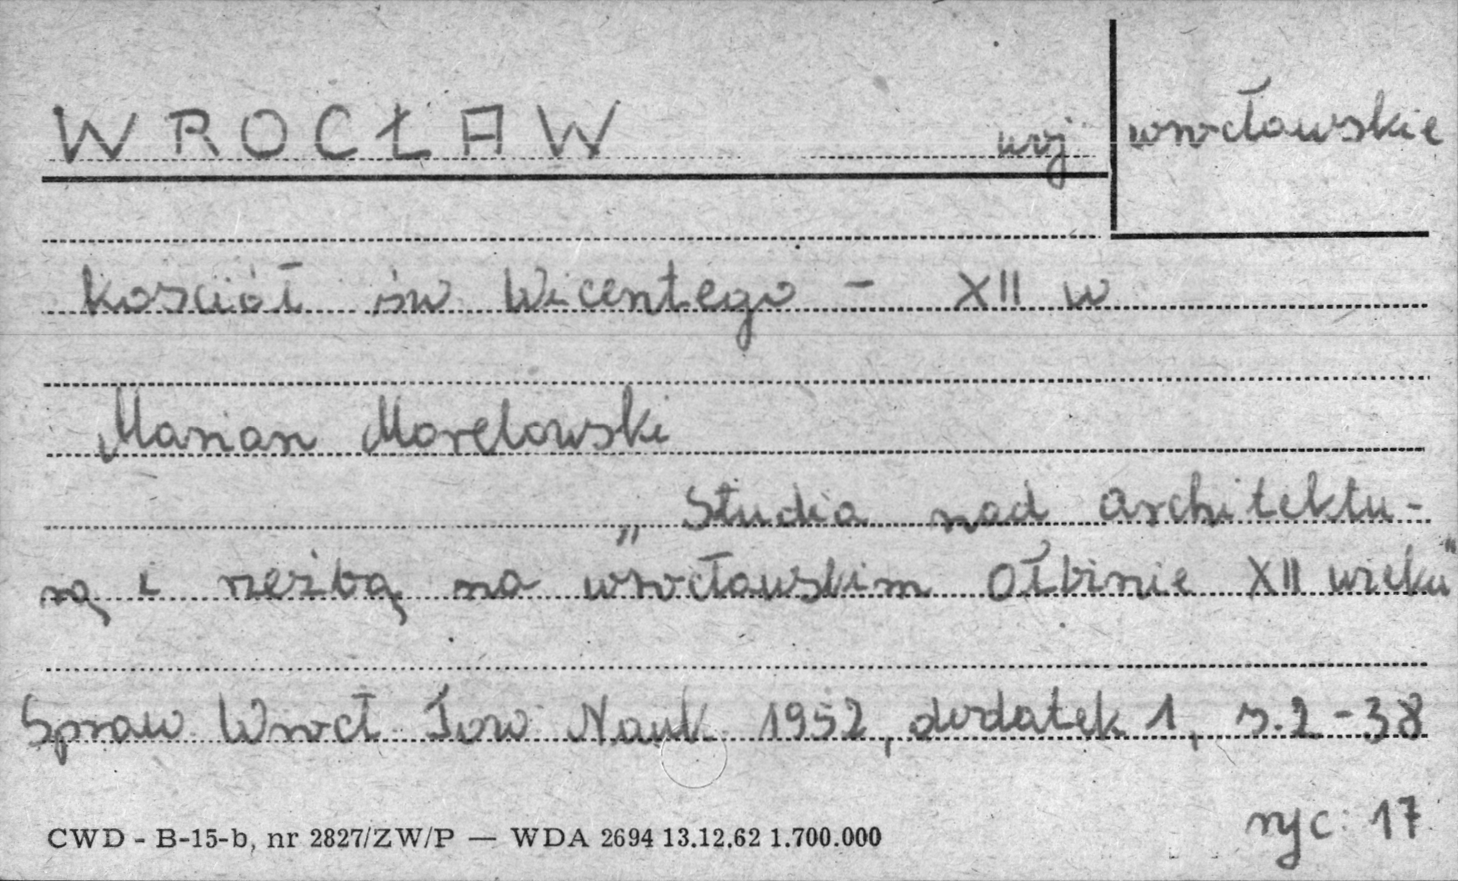 WROCŁAW woj wrocławskie
kościół św Wicentego - XII w
Marian Morelowski
„Studia nad architektu-
rą i rzeźbą na wrocławskim Ołbinie XII wieku"
Spraw Wrocł Tow Nauk 1952, dodatek 1, s. 2-38
ryc: 17
CWD - B-15-b, nr 2827/ZW/P — WDA 2694 13.12.62 1.700.000